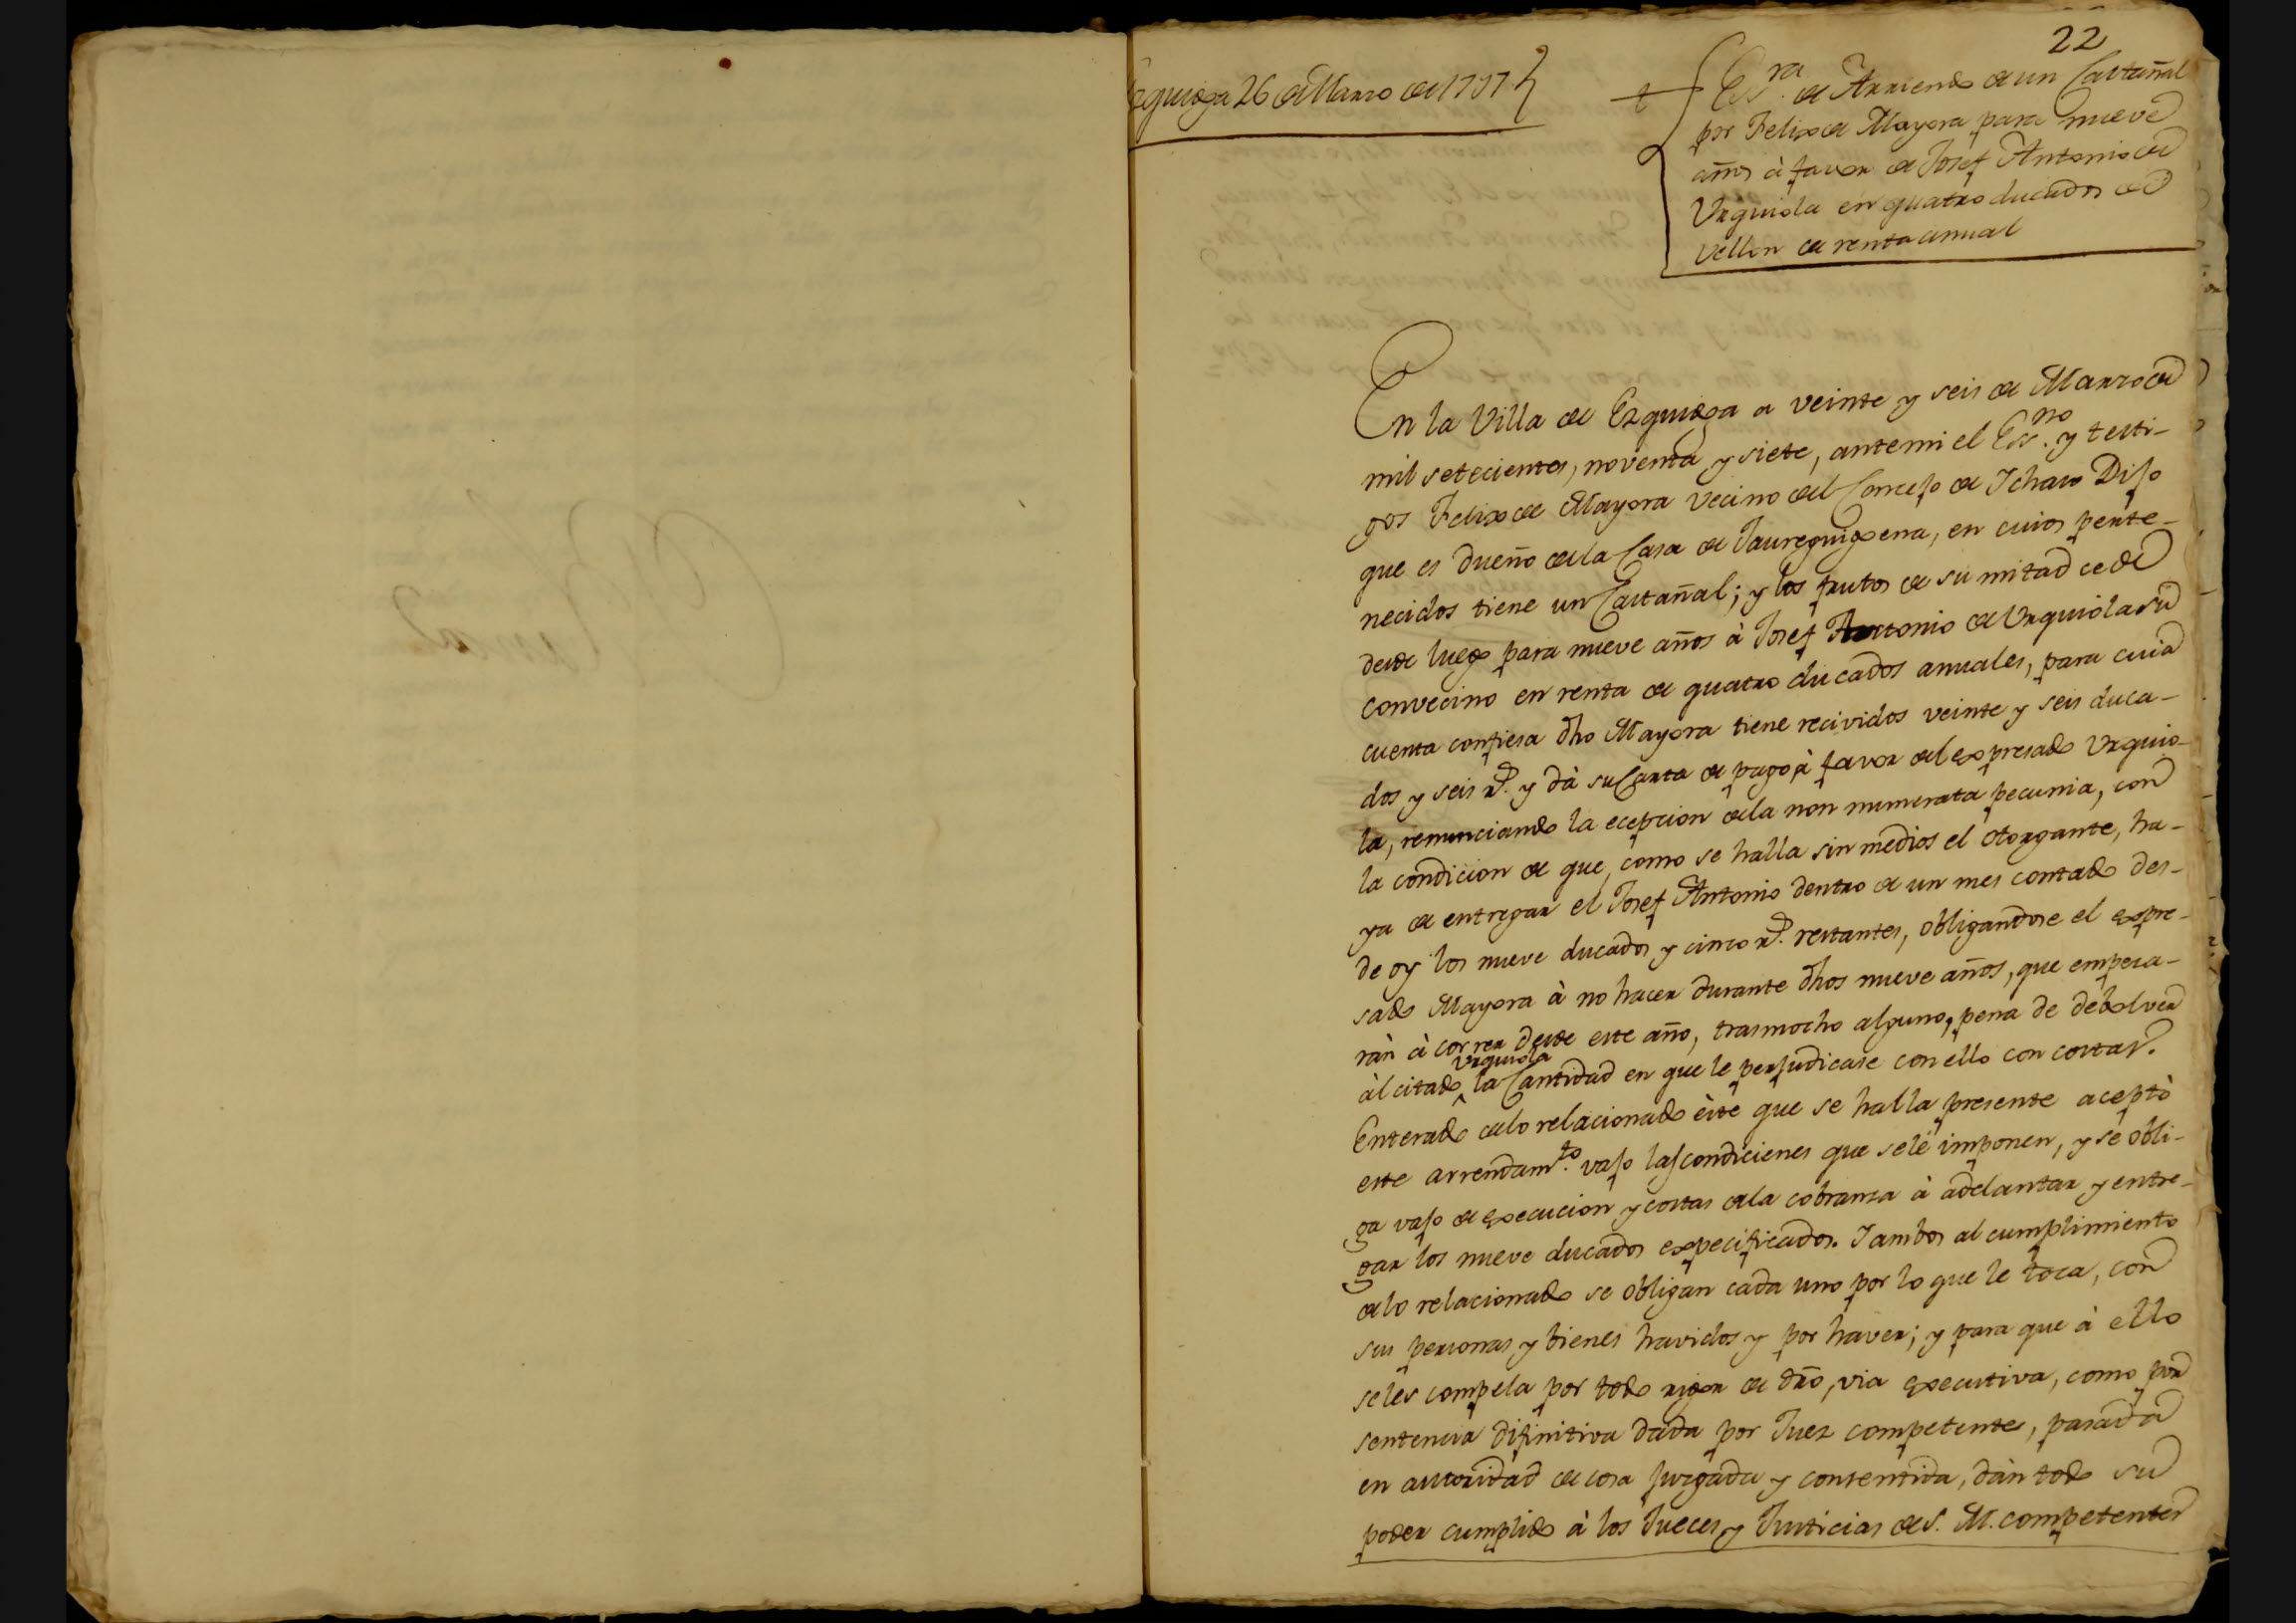 22
Ezquioga 26 de Marzo de 1797
Essra. de Arriendo de un Castañal
por Felix de Mayora para nueve
años à favor de Josef Antonio de
Urquiola en quatro ducados de
vellon de renta anual
En la Villa de Ezquioga a veinte y seis de Marzo de
mil setecientos, noventa y siete, antemi el Essno. y testi-
gos Felix de Mayora vecino del Concejo de Ichaso Dijo
que es dueño de la Casa de Jaureguigoena, en cuios perte-
necidos tiene un Castañal; y los frutos de su mitad cede
desde luego para nueve años à Josef Antonio de Urquiola su
convecino en renta de quatro ducados anuales, para cuia
cuenta confiesa dho Mayora tiene recividos veinte y seis duca-
dos y seis rs. y dà su Carta de pago à favor del expresado Urquio-
la, renunciando la ecepcion de la non numerata pecunia, con
la condicion de que, como se halla sin medios el otorgante, ha-
ya de entregar el Josef Antonio dentro de un mes contado des-
de oy los nueve ducados y cinco rs. restantes, obligandose el expre-
sado Mayora à no hacer durante dhos nueve años, que empesa-
ràn à correr desde este año, trasmocho alguno, pena de debolver
àl citado Urquiola la Cantidad en que le perjudicase con ello con costas.
Enterado de lo relacionado èste que se halla presente aceptò
este arrendamto. vajo las condicienes que sele imponen, y se obli-
ga vajo de execucion y costas de la cobranza à adelantar y entre-
gar los nueve ducados expecificados. Y ambos al cumplimiento
de lo relacionado se obligan cada uno por lo que le toca, con
sus personas y bienes havidos y por haver; y para que à ello
seles compela por todo rigor de dro, via executiva, como por
sentencia difinitiva dada por Juez competente, pasada
en autoridad de cosa juzgada y consentida, dàn todo su
poder cumplido à los Jueces y Justicias de S. M. competentes